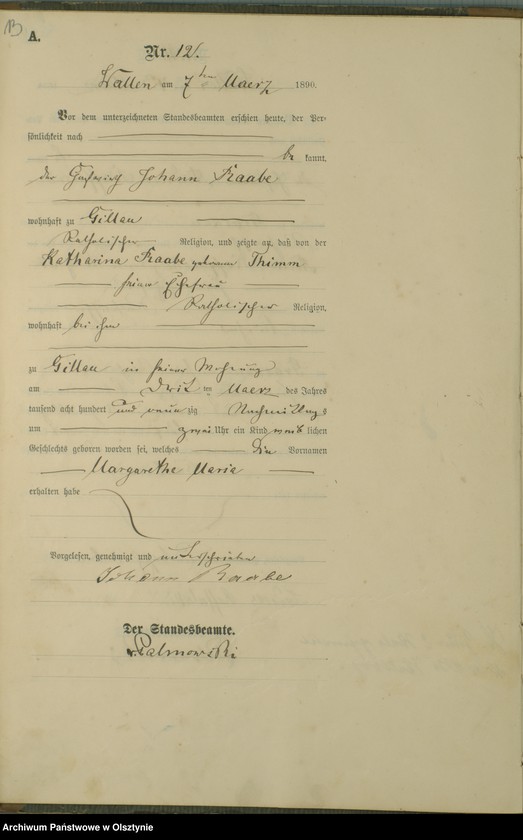 13
A.
Nr. 12.
Wallen am 7ten Maerz 1890.
Vor dem unterzeichneten Standesbeamten erschien heute, der Per-
sönlichkeit nach
be kannt,
der Johann Raabe
wohnhaft zu Gillau
Katholischer Religion, und zeigte an, daß von der
Katharina Raabe geborene Thimm
seiner Ehefrau
Katholischer Religion,
wohnhaft bei ihm
zu Gillau in seiner Wohnung
am ten Maerz des Jahres
tausend acht hundert und neun zig Nachmittags
um zwei Uhr ein Kind weib lichen
Geschlechts geboren worden sei, welches die Vornamen
Margaretha Maria
erhalten habe
Vorgelesen, genehmigt und unterschrieben
Johann Raabe
Der Standesbeamte.
Palmowski
Archiwum Państwowe w Olsztynie